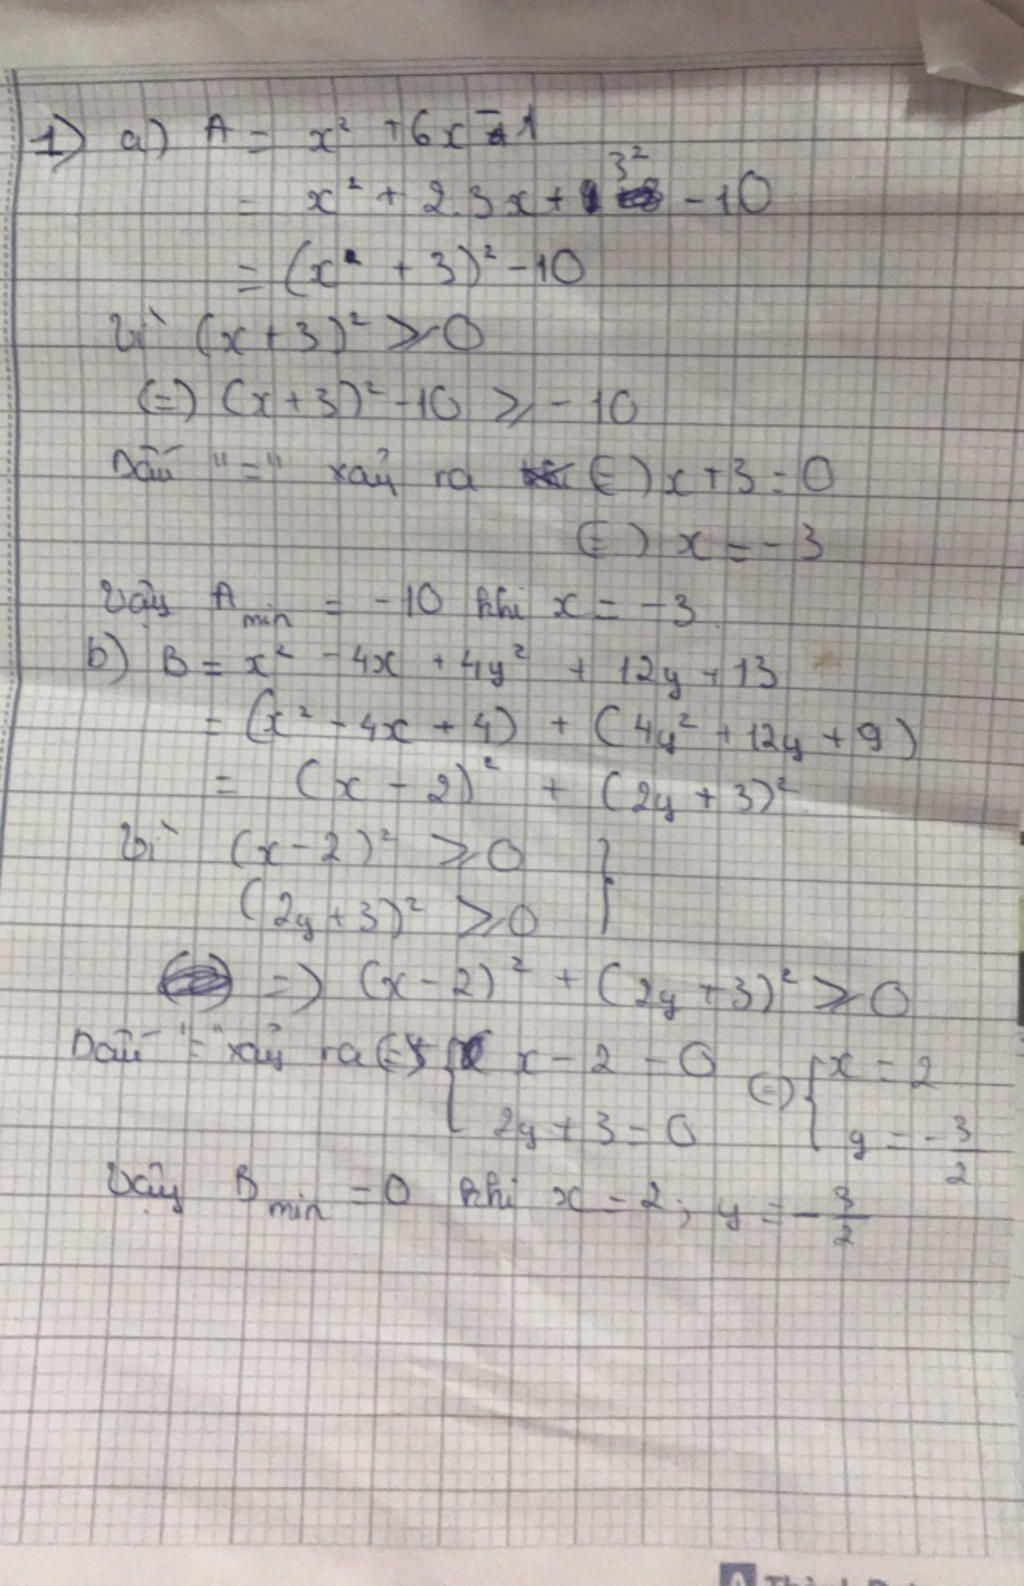 1) a) A = x² + 6x - 1
= x² + 2.3x + 3² - 10
= (x + 3)² - 10
Vì (x + 3)² ≥ 0
(=) (x + 3)² - 10 ≥ - 10
Dấu "=" xảy ra (=) x + 3 = 0
(=) x = - 3
Vậy A min = - 10 khi x = - 3.
b) B = x² - 4x + 4y² + 12y + 13
= (x² - 4x + 4) + (4y² + 12y + 9)
= (x - 2)² + (2y + 3)²
Vì (x - 2)² ≥ 0 }
(2y + 3)² ≥ 0
=) (x - 2)² + (2y + 3)² ≥ 0
Dấu "=" xảy ra (=) { x - 2 = 0 (=) { x = 2
2y + 3 = 0 y = -3/2
Vậy B min = 0 khi x = 2; y = -3/2